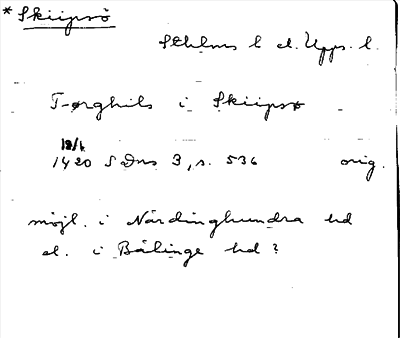 * Skiipsö
Sthlms l el. Upps. l.
Torghils i Skiipsø
18/1
1420 SDns 3, s. 536 orig.
möjl. i Närdinghundra hd
el. i Bälinge hd?